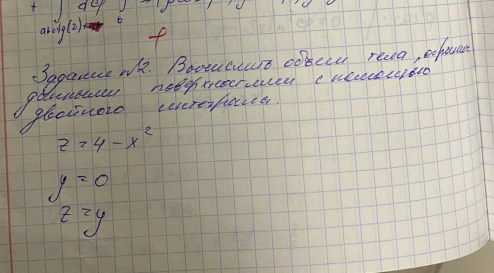 arctg(2) 0
Задание №2. Вычислить объем тела, огранич
данными поверхностями с помощью
двойного интеграла.
z = 4 - x²
y = 0
z = y